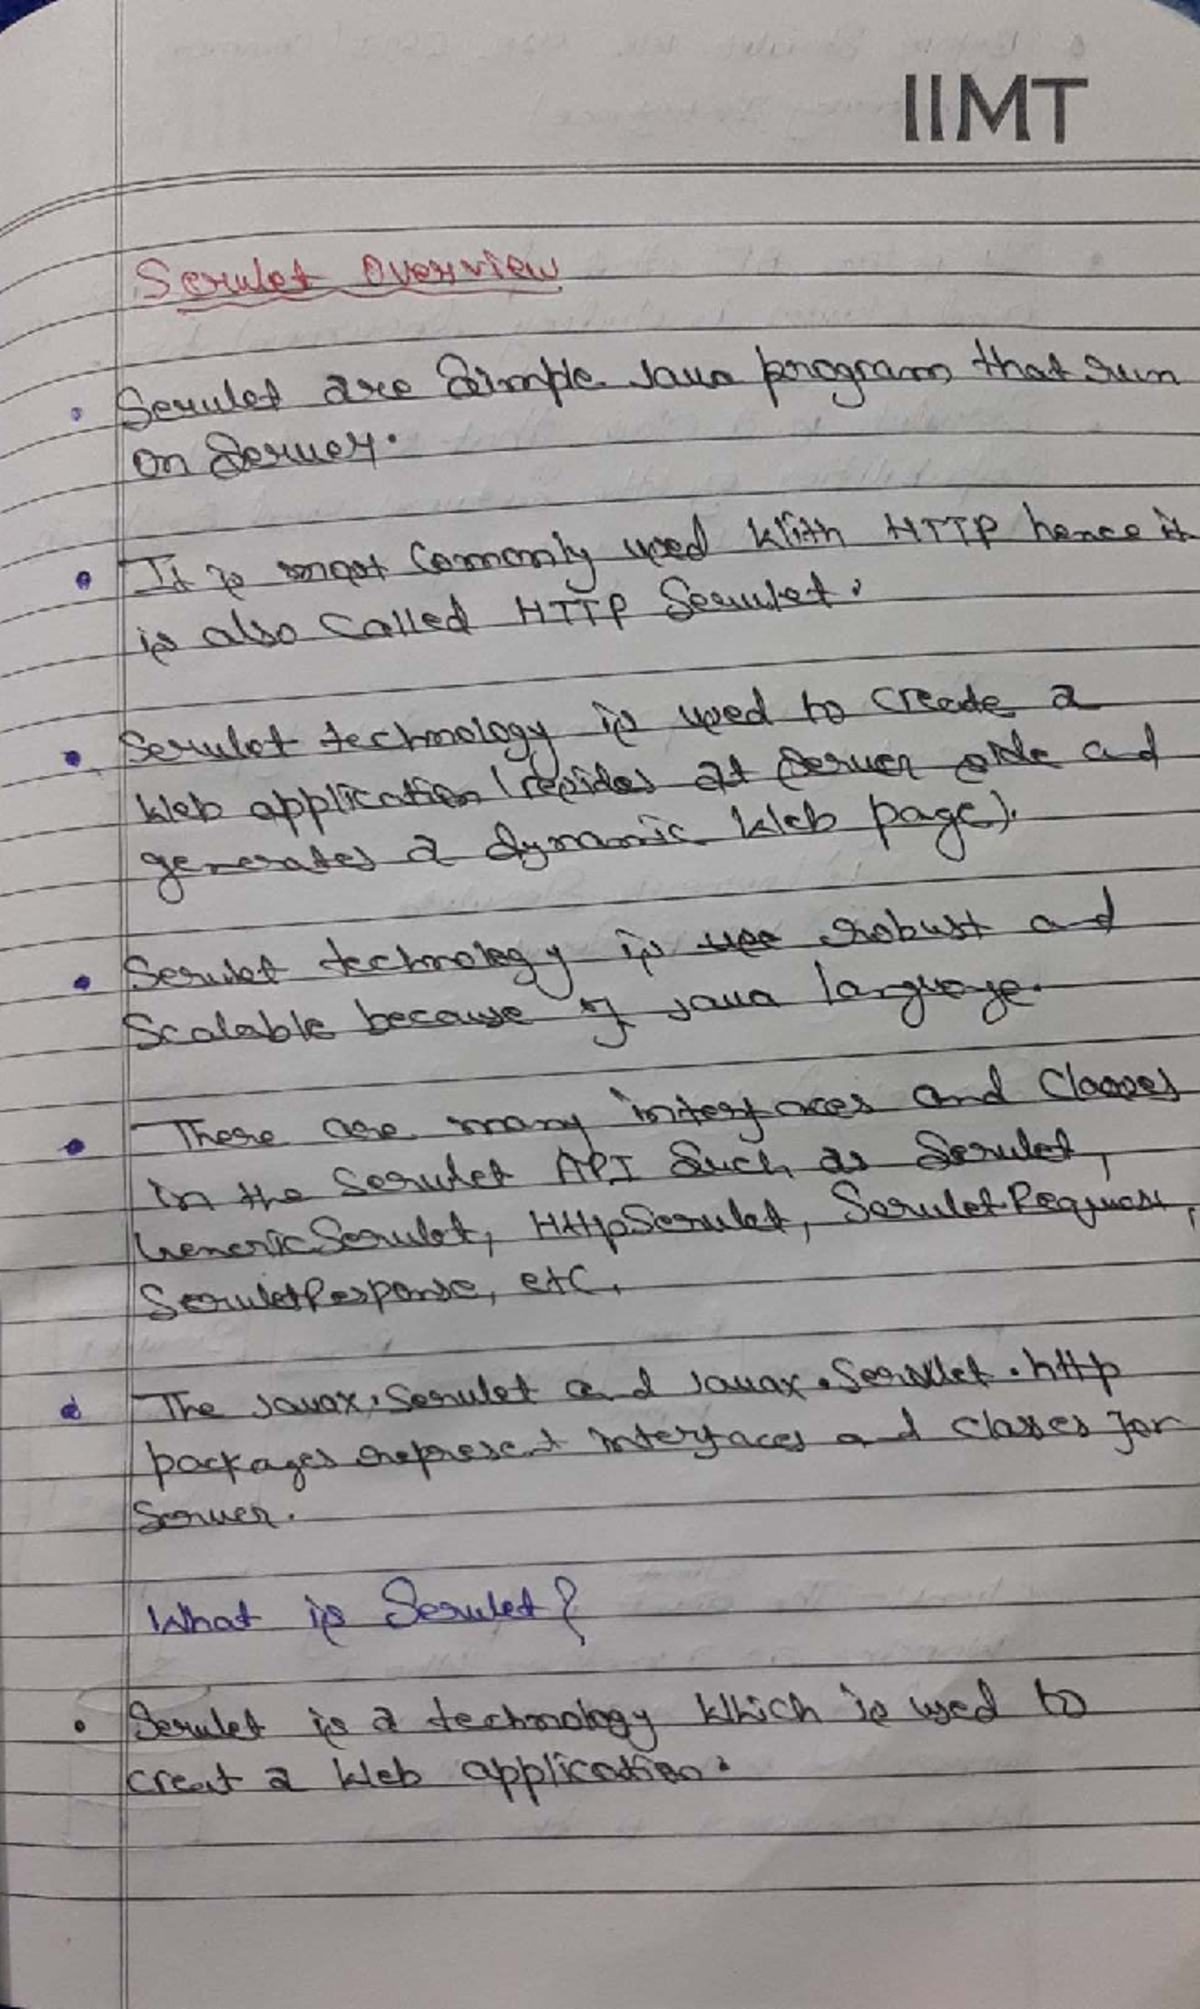 IIMT
Servlet Overview
• Servlet are Simple Java program that run
on Server.
• It is most Commonly used With HTTP hence it
is also Called HTTP Servlet.
• Servlet technology is used to create a
Web application (resides at server side and
generates a dynamic Web page).
• Servlet technology is robust and
Scalable because of java language.
• There are many interfaces and Classes
in the Servlet API Such as Servlet,
GenericServlet, HttpServlet, ServletRequest,
ServletResponse, etc.
• The javax.Servlet and javax.Servlet.http
packages represent interfaces and classes for
Server.
What is Servlet?
• Servlet is a technology Which is used to
creat a Web application.